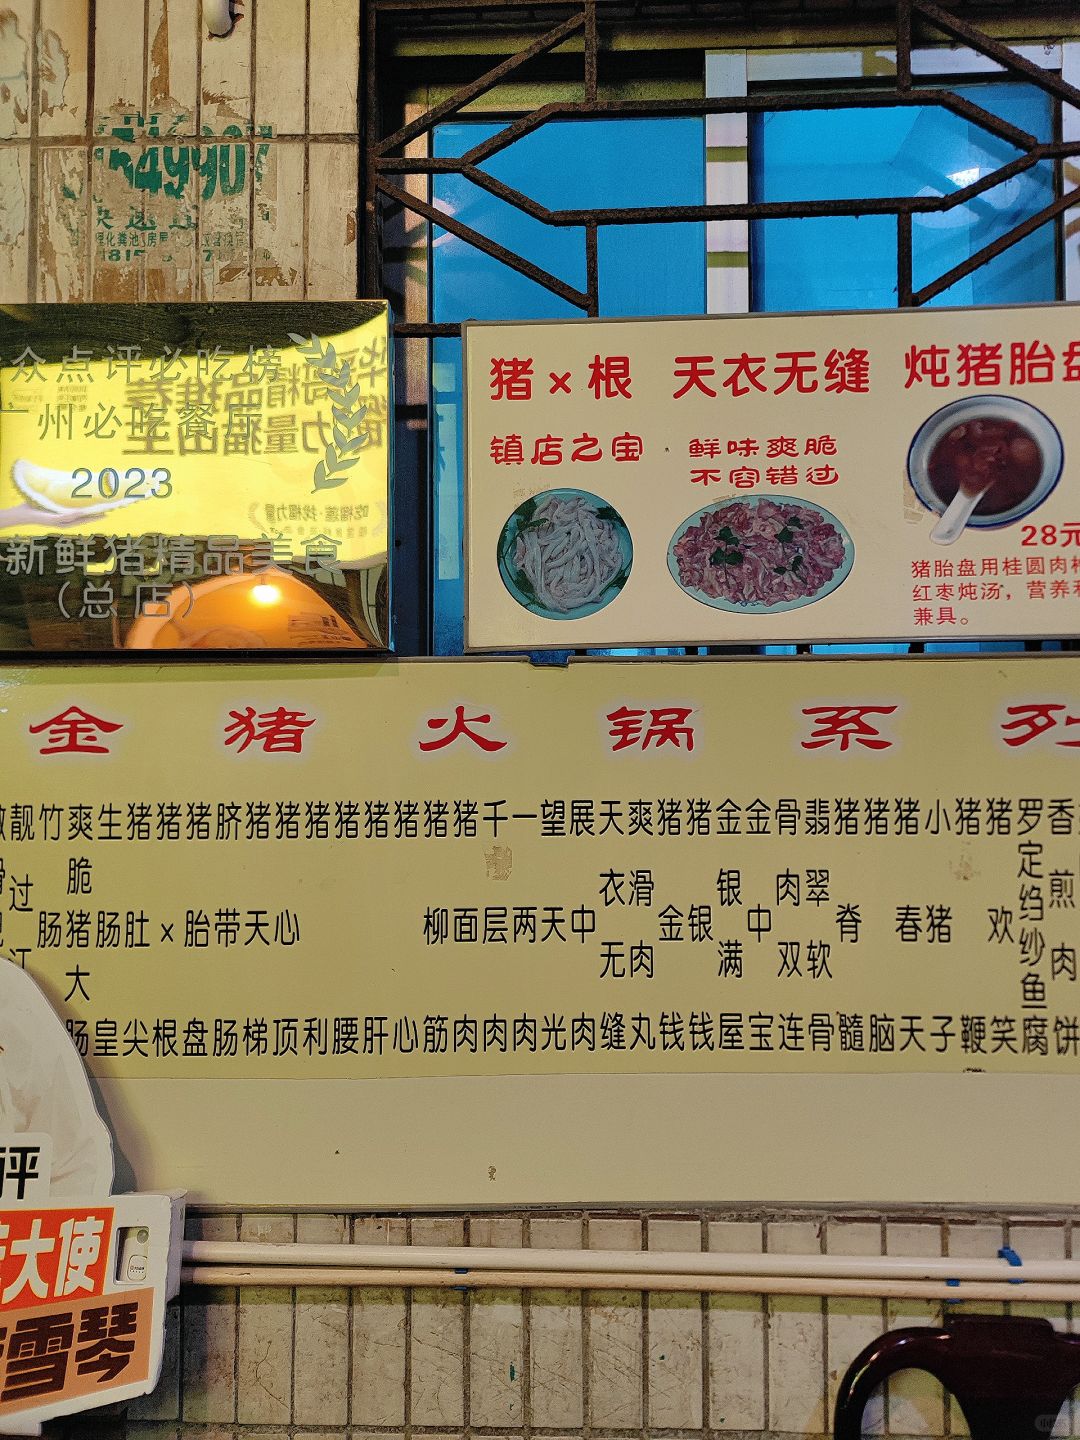 549907
快速
化粪池
众点评必吃榜
广州必吃餐厅
2023
新鲜猪精品美食
（总店）
猪×根
镇店之宝
天衣无缝
鲜味爽脆
不容错过
炖猪胎盘
28元
猪胎盘用桂圆肉
红枣炖汤，营养
兼具。
金猪火锅系列
靓过江
竹肠
爽脆猪大肠
生肠皇
猪肚尖
猪×根
猪胎盘
脐带肠
猪天梯
猪心顶
猪利
猪腰
猪肝
猪心
猪柳筋
猪面肉
千层肉
一两肉
望天光
展中肉
天衣无缝
爽滑肉丸
猪金钱
猪银钱
金银满屋
金中宝
骨肉双连
翡翠软骨
猪脊髓
猪脑
猪春天
小猪子
猪鞭
猪欢笑
罗定绉纱鱼腐
香煎肉饼
评
大使
雪琴